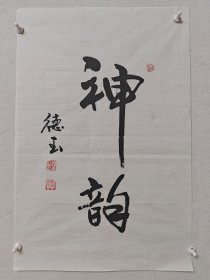 神韵
德玉